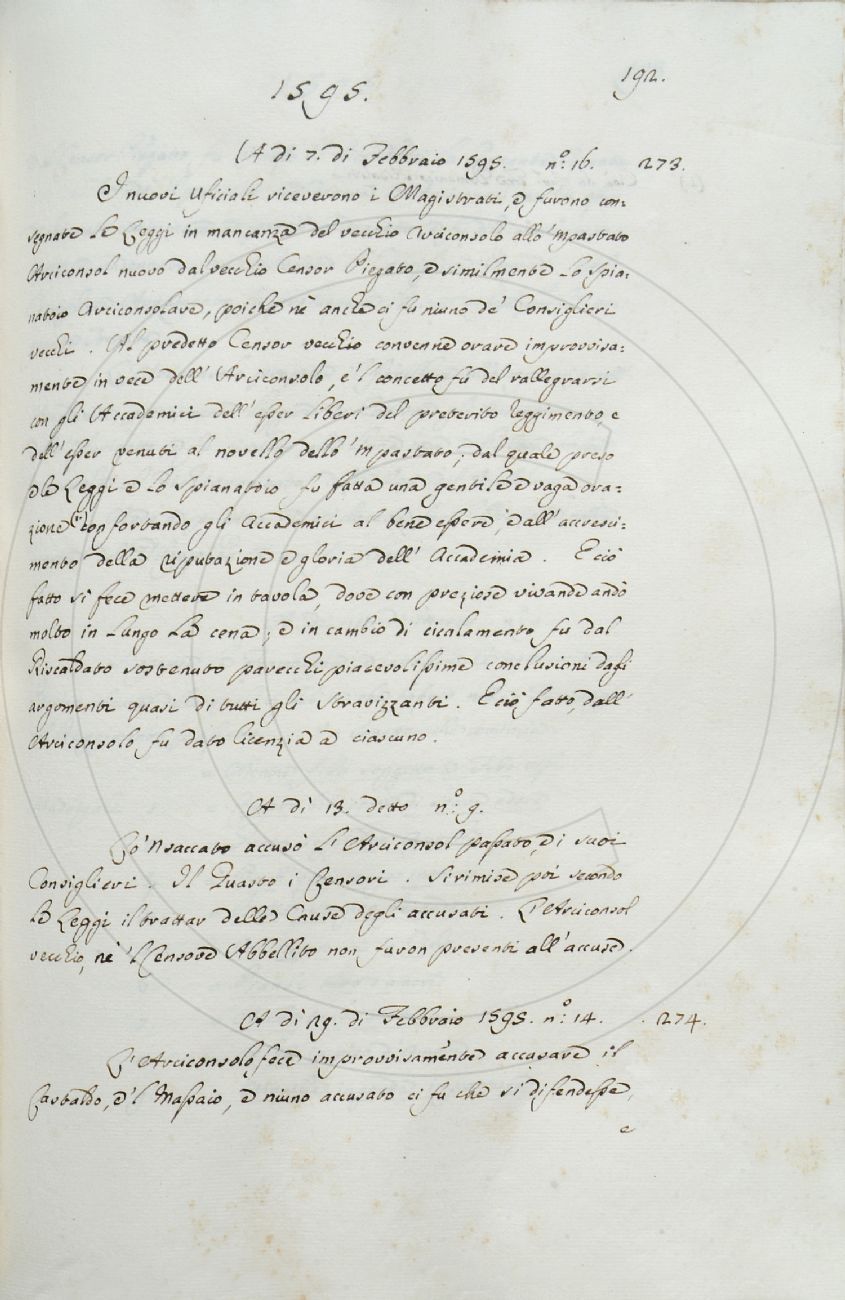 192.
1595.
A di 7. di Febbraio 1595. n.º 16. 273.
I nuovi Uficiali riceverono i Magistrati, e furono con:
segnate le Leggi in mancanza del vecchio Arciconsolo allo 'mpastato
Arciconsol nuovo dal vecchio Censor Piegato, e similmente lo spia:
natoio Arciconsolare, poiche nè anche ci fu niuno de' Consiglieri
vecchi. Al predetto Censor vecchio convenne orare improvvisa:
mente in vece dell' Arciconsolo, e 'l concetto fu del rallegrarsi
con gli Accademici dell' esser liberi del preterito reggimento, e
dell' esser venuti al novello dello 'mpastato; dal quale preso
e le Leggi e lo spianatoio fu fatta una gentile e vaga ora:
zione confortando gli Accademici al bene essere, e all' accresci:
mento della riputazione e gloria dell' Accademia. E ciò
fatto si fece mettere in tavola, dove con preziose vivande andò
molto in lungo la cena; e in cambio di cicalamento fu dal
Riscaldato sostenuto parecchi piacevolissime conclusioni dagli
argomenti quasi di tutti gli stravizzanti. E ciò fatto, dall'
Arciconsolo fu dato licenzia a ciascuno.
A dì 13. detto n.º 9.
Lo 'Nsaccato accusò l'Arciconsol passato, e i suoi
Consiglieri. Il Guasto i Censori. Si rimise poi secondo
le Leggi il trattar delle Cause degli accusati. L'Arciconsol
vecchio, nè 'l Censore Abbellito non furon presenti all' accuse.
A dì 29. di Febbraio 1595. n.º 14. 274.
L'Arciconsolo fece improvvisamente accusare il
Castaldo, e 'l Massaio, e niuno accusato ci fu che si difendesse,
e